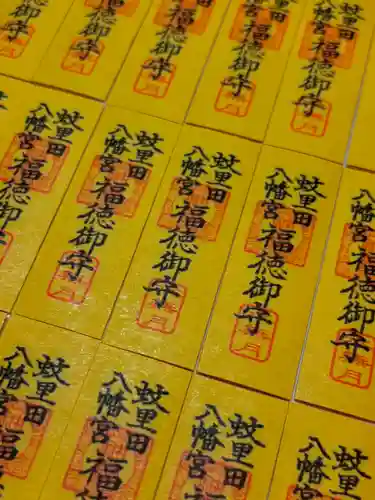 御守
徳御守
福徳御守
福徳御守
蚊里田
八幡宮
福徳御守
蚊里田
八幡宮
福徳御守
蚊里田
八幡宮
福徳御守
蚊里田
八幡宮
福徳御守
蚊里田
八幡宮
福徳御守
八幡宮
福徳御守
蚊里田
八幡宮
福
蚊里田
八幡宮
福
蚊里田
八幡宮
蚊里田
八幡